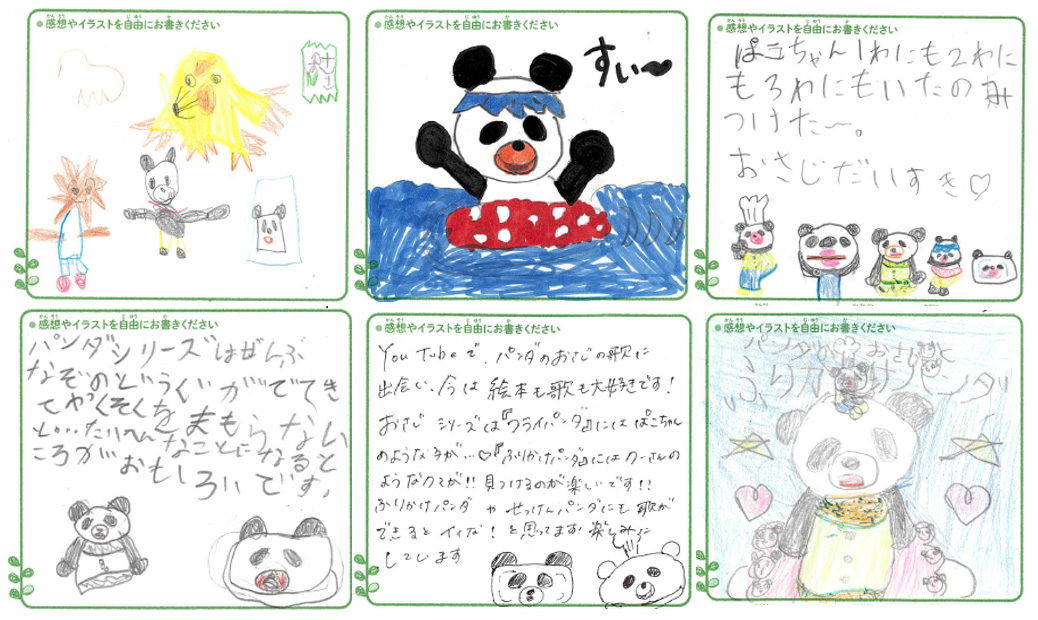 感想やイラストを自由にお書きください
感想やイラストを自由にお書きください
すい〜
感想やイラストを自由にお書きください
ぱこちゃん1わにも2わに
も3わにもいたのみ
つけた〜。
おさじだいすき♡
感想やイラストを自由にお書きください
パンダシリーズはぜんぶ
なぞのどうぐがでてき
てやくそくをまもらない
と…たいへんなことになると
ころがおもしろいです。
感想やイラストを自由にお書きください
YouTubeで、パンダのおさじの歌に
出会い、今は絵本も歌も大好きです!
おさじシリーズは『フライパンダ』にはぱこちゃん
のような子が…♡『ふりかけパンダ』にはクーさんの
ようなクマが!!見つけるのが楽しいです!!
ふりかけパンダやせっけんパンダにも歌が
できるとイイな!と思ってます!楽しみに
しています
感想やイラストを自由にお書きください
パンダのおさじと
ふりかけパンダ